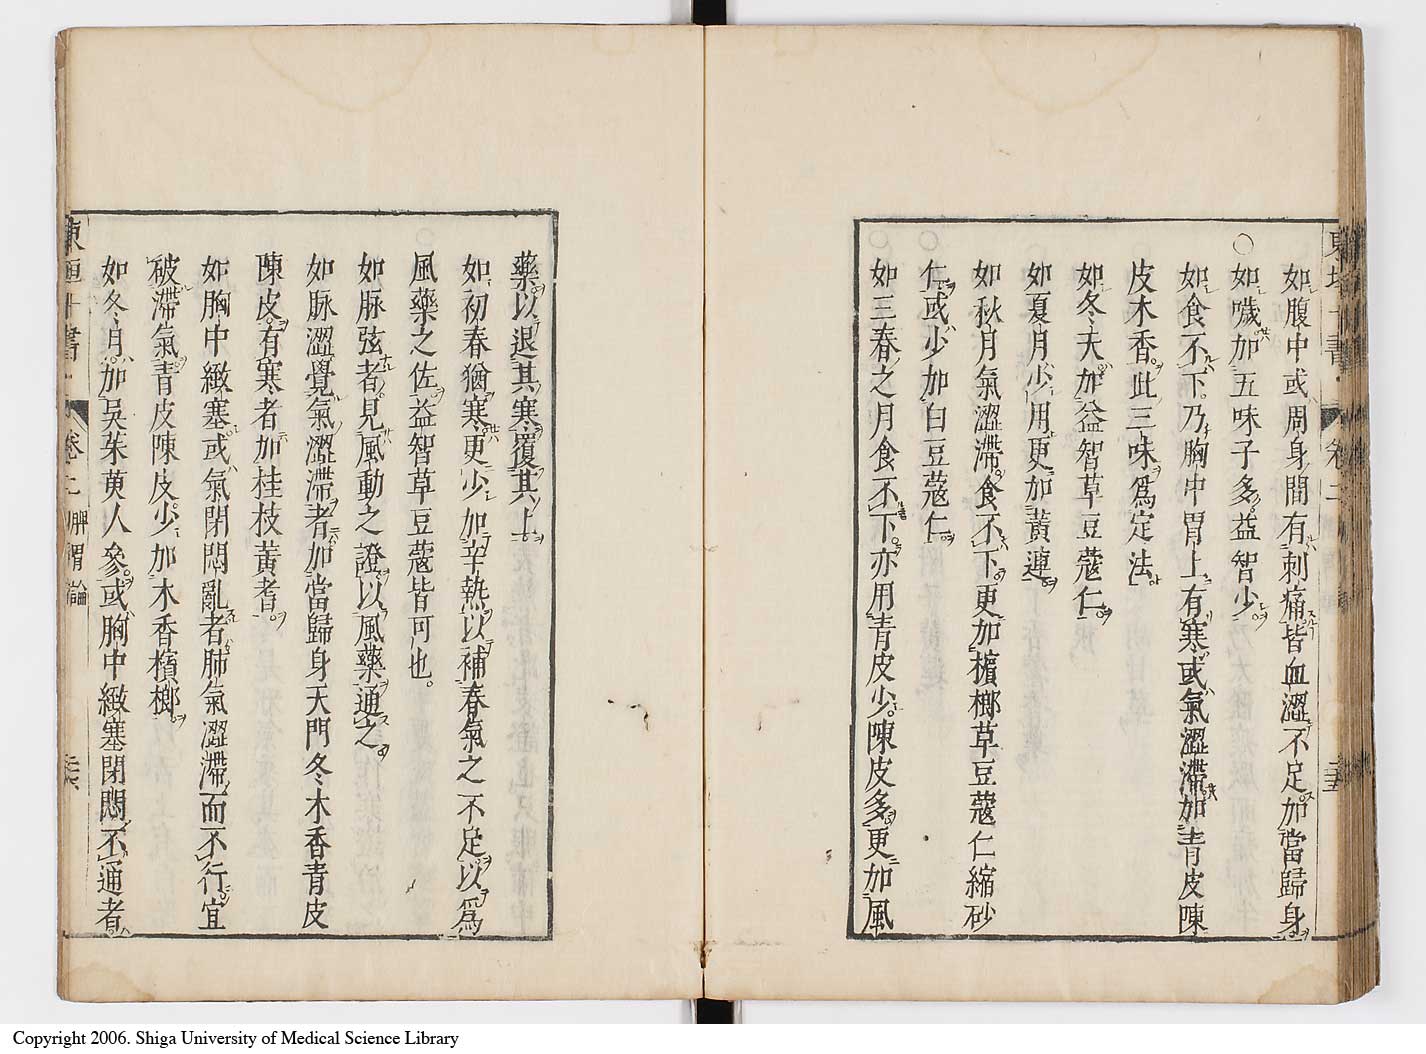 如腹中或周身間有刺痛皆血澀不足加當歸身
○如噦加五味子多益智少
如食不下乃胸中胃上有寒或氣澀滯加青皮陳
皮木香此三味爲定法
如冬天加益智草豆蔻仁
如夏月少用更加黃連
如秋月氣澀滯食不下更加檳榔草豆蔻仁縮砂
○仁或少加白豆蔻仁
○如三春之月食不下亦用青皮少陳皮多更加風
藥以退其寒覆其上
如初春猶寒更少加辛熱以補春氣之不足以爲
風藥之佐益智草豆蔻皆可也。
如脉弦者見風動之證以風藥通之
如脉澀覺氣澀滯者加當歸身天門冬木香青皮
陳皮有寒者加桂枝黃耆
如胸中緻塞或氣閉悶亂者肺氣澀滯而不行宜
破滯氣青皮陳皮少加木香檳榔
如冬月加吳茱萸人參或胸中緻塞閉悶不通者
東垣十書 卷之 脾胃論
Copyright 2006. Shiga University of Medical Science Library